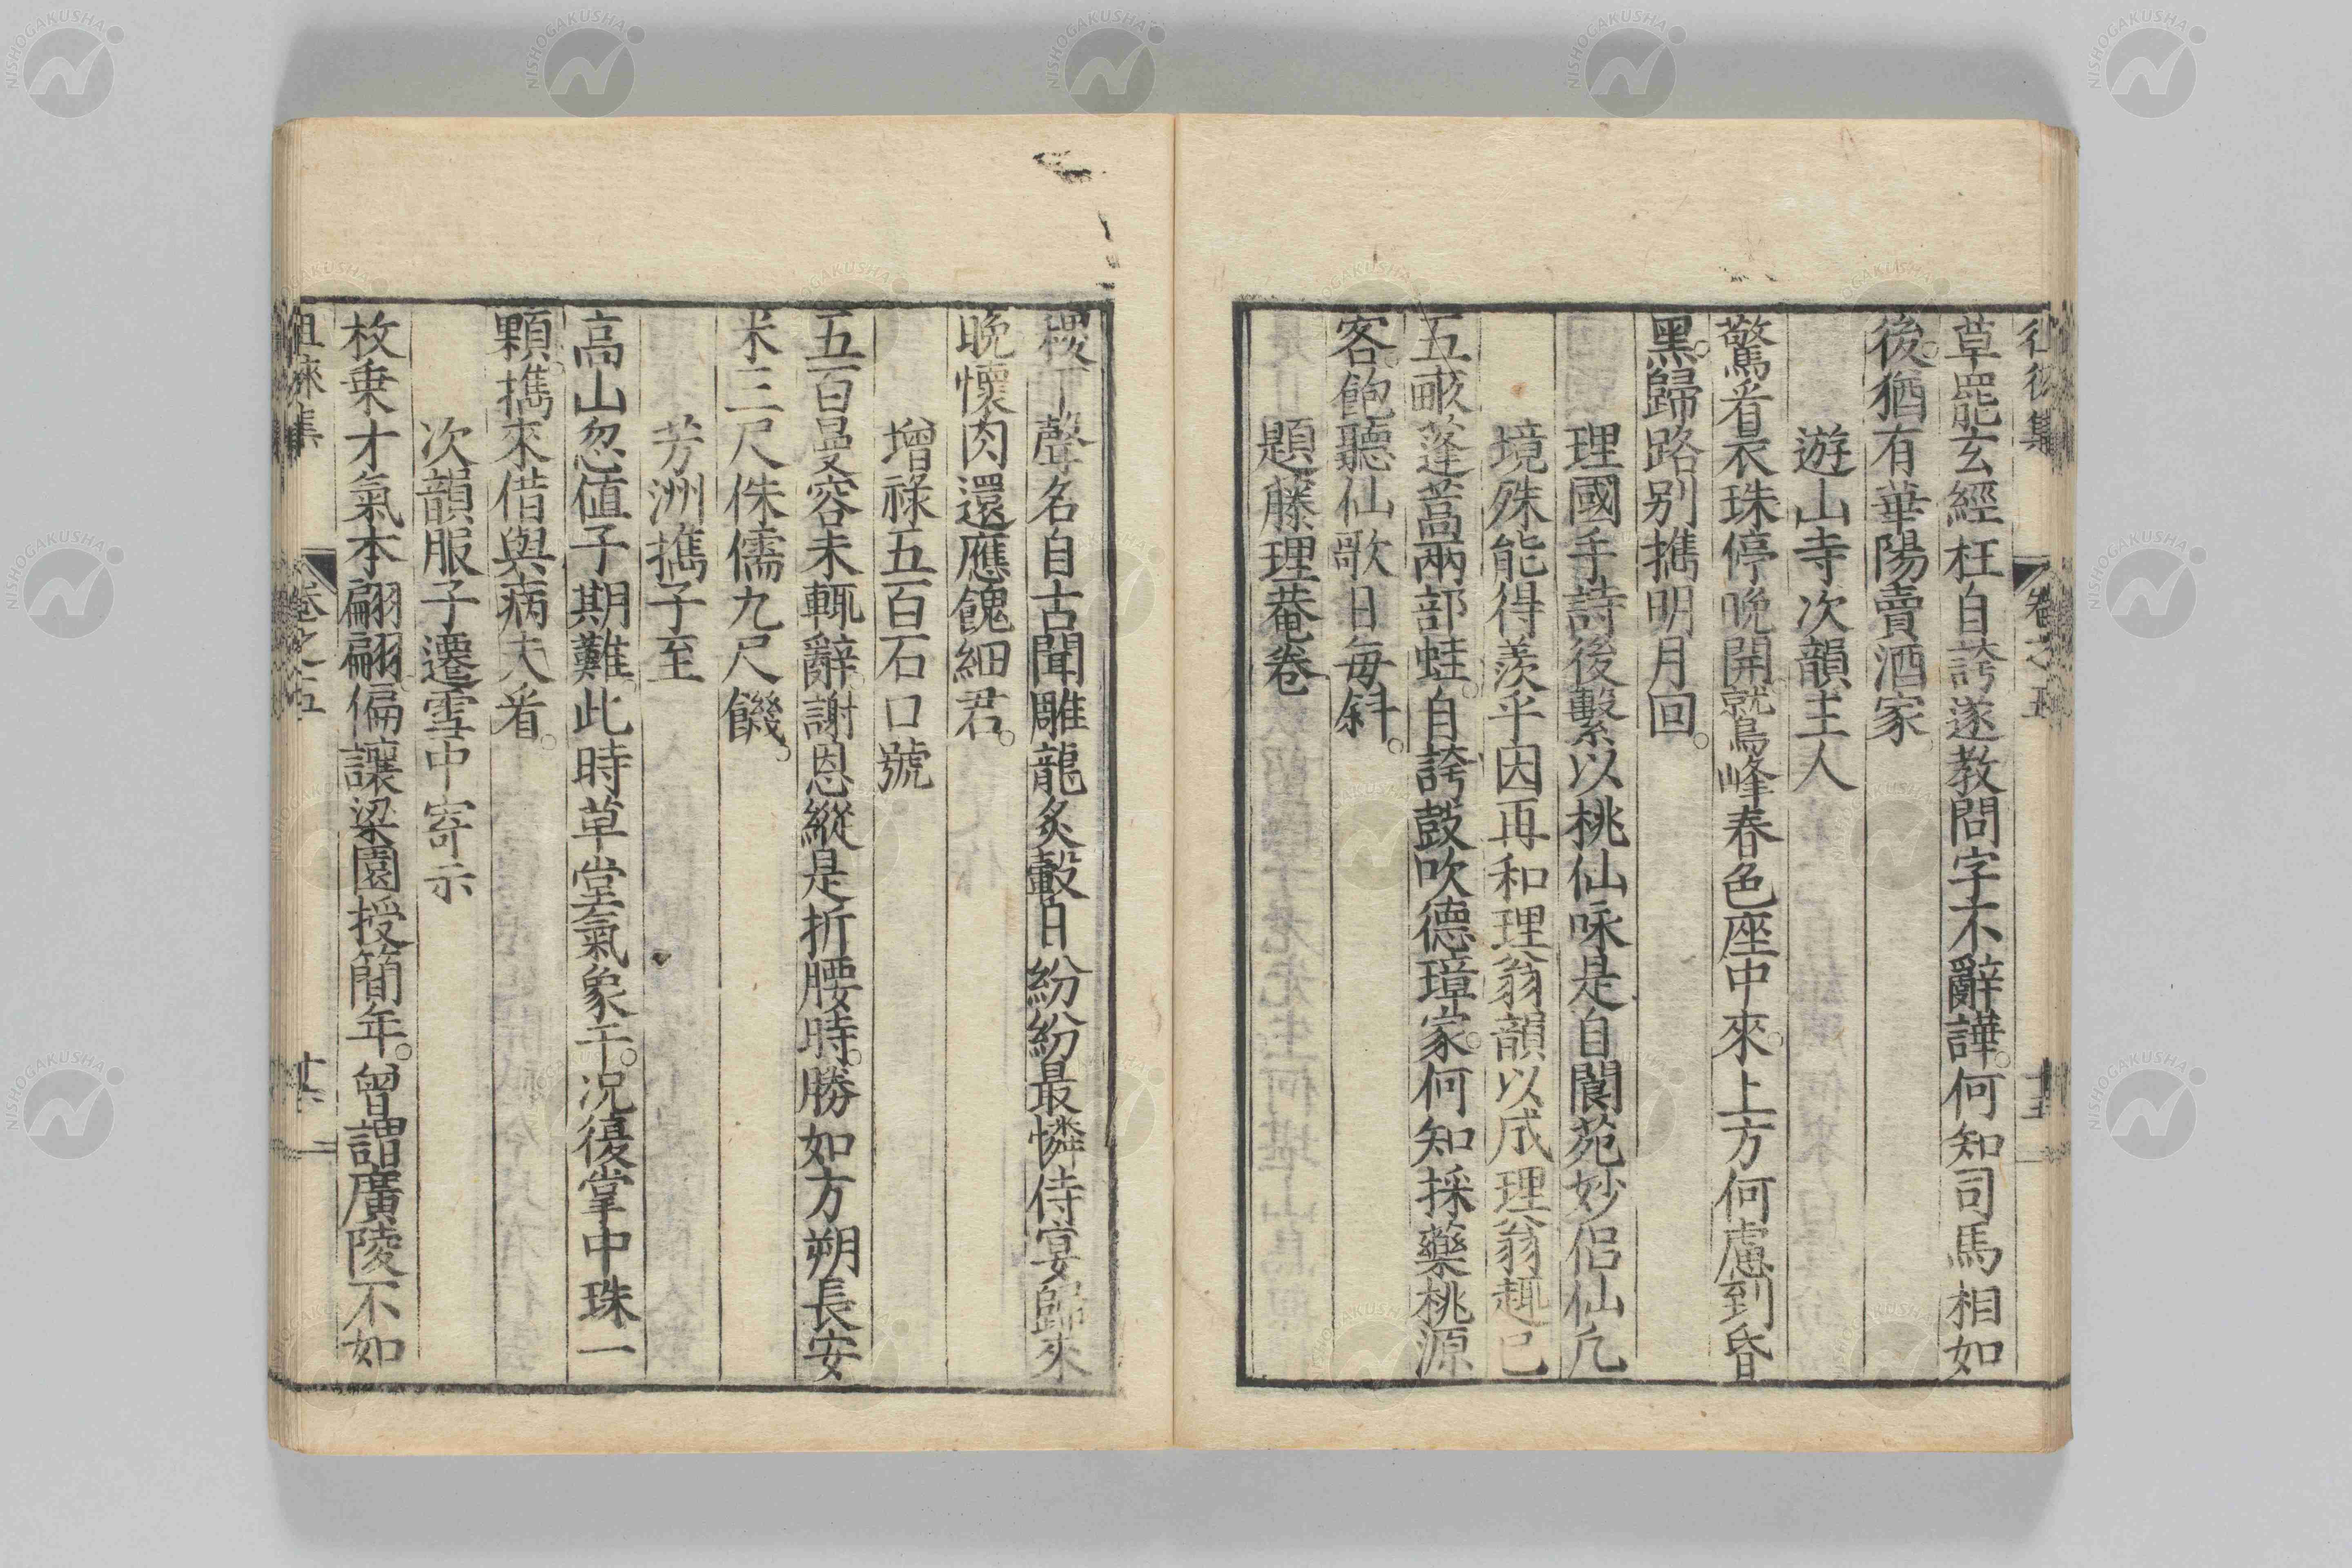 徂徠集
卷之五
草罷玄經枉自誇遂教問字不辭譁何知司馬相如
後猶有華陽賣酒家
遊山寺次韻主人
驚看衣珠停晚開鷲峰春色座中來上方何慮到昏
黑歸路別携明月回
理國手詩後繫以桃仙咏是自閬苑妙侶仙凡
境殊能得羨乎因再和理翁韻以成理翁趣已
五畞蓬蒿兩部蛙自誇鼓吹德璋家何知採藥桃源
客飽聽仙歌日每斜
題藤理菴卷
稷下聲名自古聞雕龍炙轂日紛紛最憐侍宴歸來
晚懷肉還應餽細君
增祿五百石口號
五百曼容未輒辭謝恩縱是折腰時勝如方朔長安
米三尺侏儒九尺饑
芳洲携子至
高山忽值子期難此時草堂氣象干况復掌中珠一
顆携來借與病夫看
次韻服子遷雪中寄示
枚乘才氣本翩翩偏讓梁園授簡年曾謂廣陵不如
徂徠集
卷之五
NISHOGAKUSHA